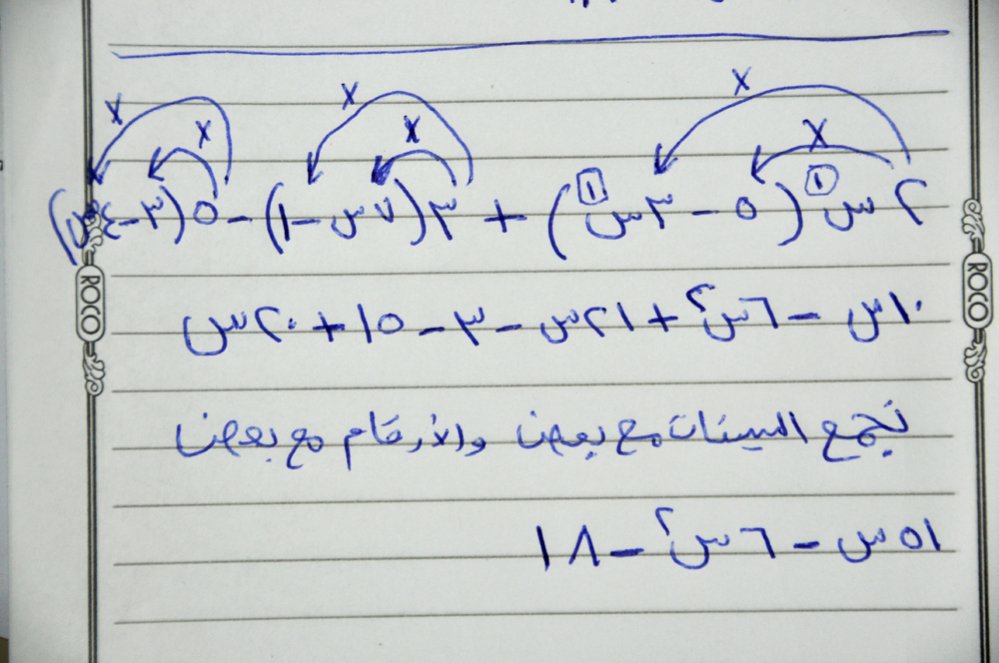 ٢س(٥ - ٣س) + ٣(٧س - ١) - ٥(٣ - ٤س)
١٠س - ٦س٢ + ٢١س - ٣ - ١٥ + ٢٠س
نجمع السينات مع بعض والأرقام مع بعض
٥١س - ٦س٢ - ١٨
ROCO
ROCO